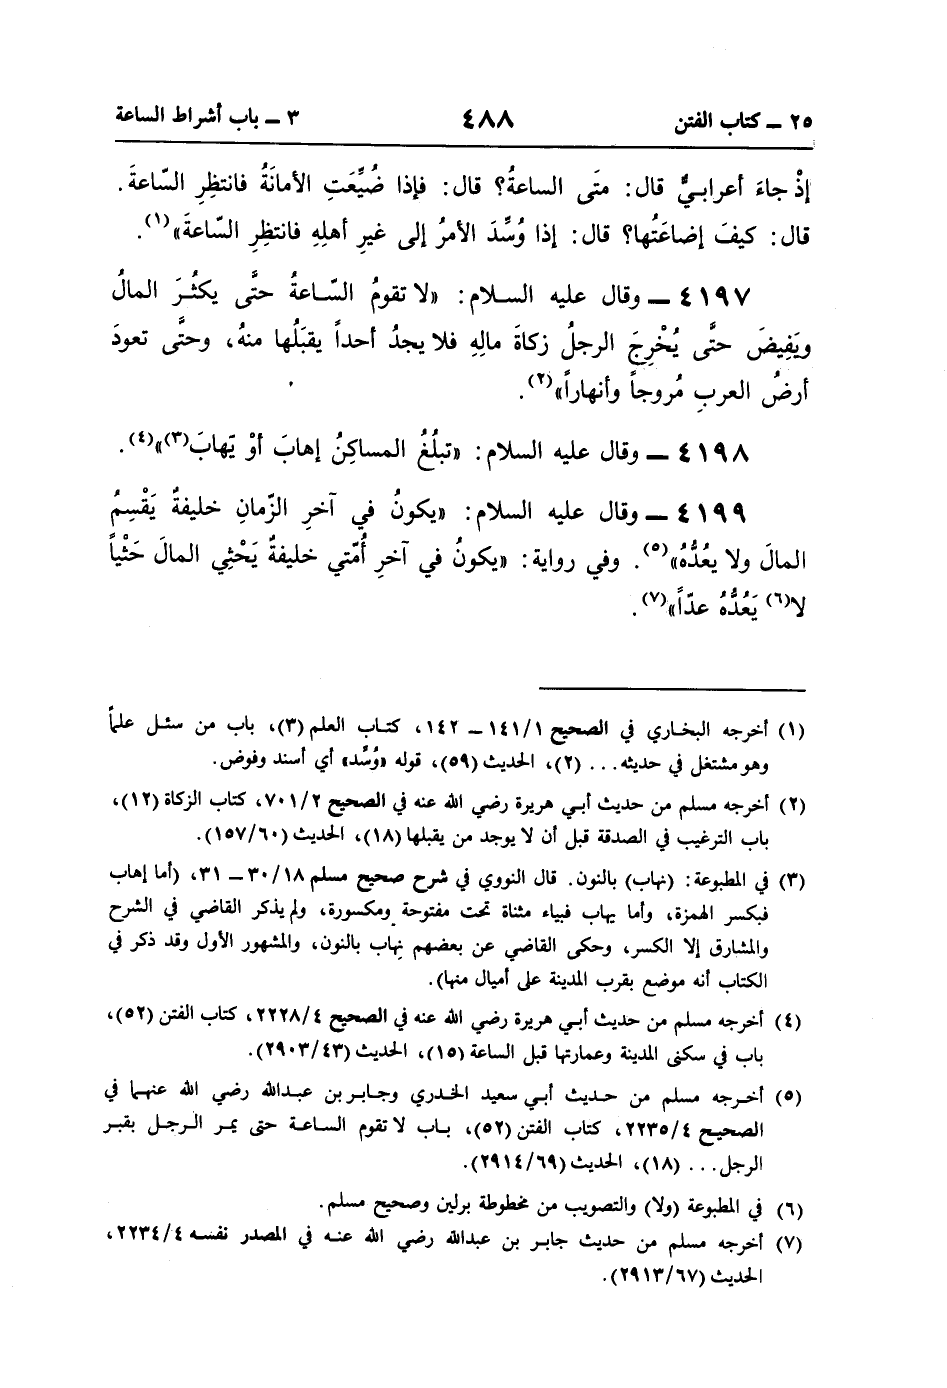 ٢٥ ـ كتاب الفتن ٤٨٨ ٣ ـ باب أشراط الساعة
إذْ جاءَ أعرابيٌّ قال: متَى الساعةُ؟ قال: فإذا ضُيِّعَتِ الأمانَةُ فانتظِرِ السّاعةَ.
قال: كيفَ إضاعَتُها؟ قال: إذا وُسِّدَ الأمرُ إلى غيرِ أهلِهِ فانتظِرِ السّاعةَ»(١).
٤١٩٧ ـ وقال عليه السلام: «لا تقومُ السّاعةُ حتَّى يكثُرَ المالُ
ويَفِيضَ حتَّى يُخْرِجَ الرجلُ زكاةَ مالِهِ فلا يجدُ أحداً يقبَلُها منهُ، وحتَّى تعودَ
أرضُ العربِ مُروجاً وأنهاراً»(٢).
٤١٩٨ ـ وقال عليه السلام: «تبلُغُ المساكِنُ إهابَ أوْ يَهابَ(٣)»(٤).
٤١٩٩ ـ وقال عليه السلام: «يكونُ في آخرِ الزّمانِ خليفةٌ يَقْسِمُ
المالَ ولا يعُدُّهُ»(٥). وفي رواية: «يكونُ في آخرِ أُمّتي خليفةٌ يَحْثِي المالَ حَثْياً
لا(٦) يَعُدُّهُ عدّاً»(٧).
(١) أخرجه البخاري في الصحيح ١٤١/١ ـ ١٤٢، كتاب العلم (٣)، باب من سئل علماً
وهو مشتغل في حديثه... (٢)، الحديث (٥٩)، قوله «وُسِّد» أي أسند وفوض.
(٢) أخرجه مسلم من حديث أبي هريرة رضي الله عنه في الصحيح ٧٠١/٢، كتاب الزكاة (١٢)،
باب الترغيب في الصدقة قبل أن لا يوجد من يقبلها (١٨)، الحديث (١٥٧/٦٠).
(٣) في المطبوعة: (نهاب) بالنون. قال النووي في شرح صحيح مسلم ٣٠/١٨ ـ ٣١، (أما إهاب
فبكسر الهمزة، وأما يهاب فبياء مثناة تحت مفتوحة ومكسورة، ولم يذكر القاضي في الشرح
والمشارق إلا الكسر، وحكى القاضي عن بعضهم نِهاب بالنون، والمشهور الأول وقد ذكر في
الكتاب أنه موضع بقرب المدينة على أميال منها).
(٤) أخرجه مسلم من حديث أبي هريرة رضي الله عنه في الصحيح ٢٢٢٨/٤، كتاب الفتن (٥٢)،
باب في سكنى المدينة وعمارتها قبل الساعة (١٥)، الحديث (٢٩٠٣/٤٣).
(٥) أخرجه مسلم من حديث أبي سعيد الخدري وجابر بن عبدالله رضي الله عنهما في
الصحيح ٢٢٣٥/٤، كتاب الفتن (٥٢)، باب لا تقوم الساعة حتى يمر الرجل بقبر
الرجل... (١٨)، الحديث (٢٩١٤/٦٩).
(٦) في المطبوعة (ولا) والتصويب من مخطوطة برلين وصحيح مسلم.
(٧) أخرجه مسلم من حديث جابر بن عبدالله رضي الله عنه في المصدر نفسه ٢٢٣٤/٤،
الحديث (٢٩١٣/٦٧).